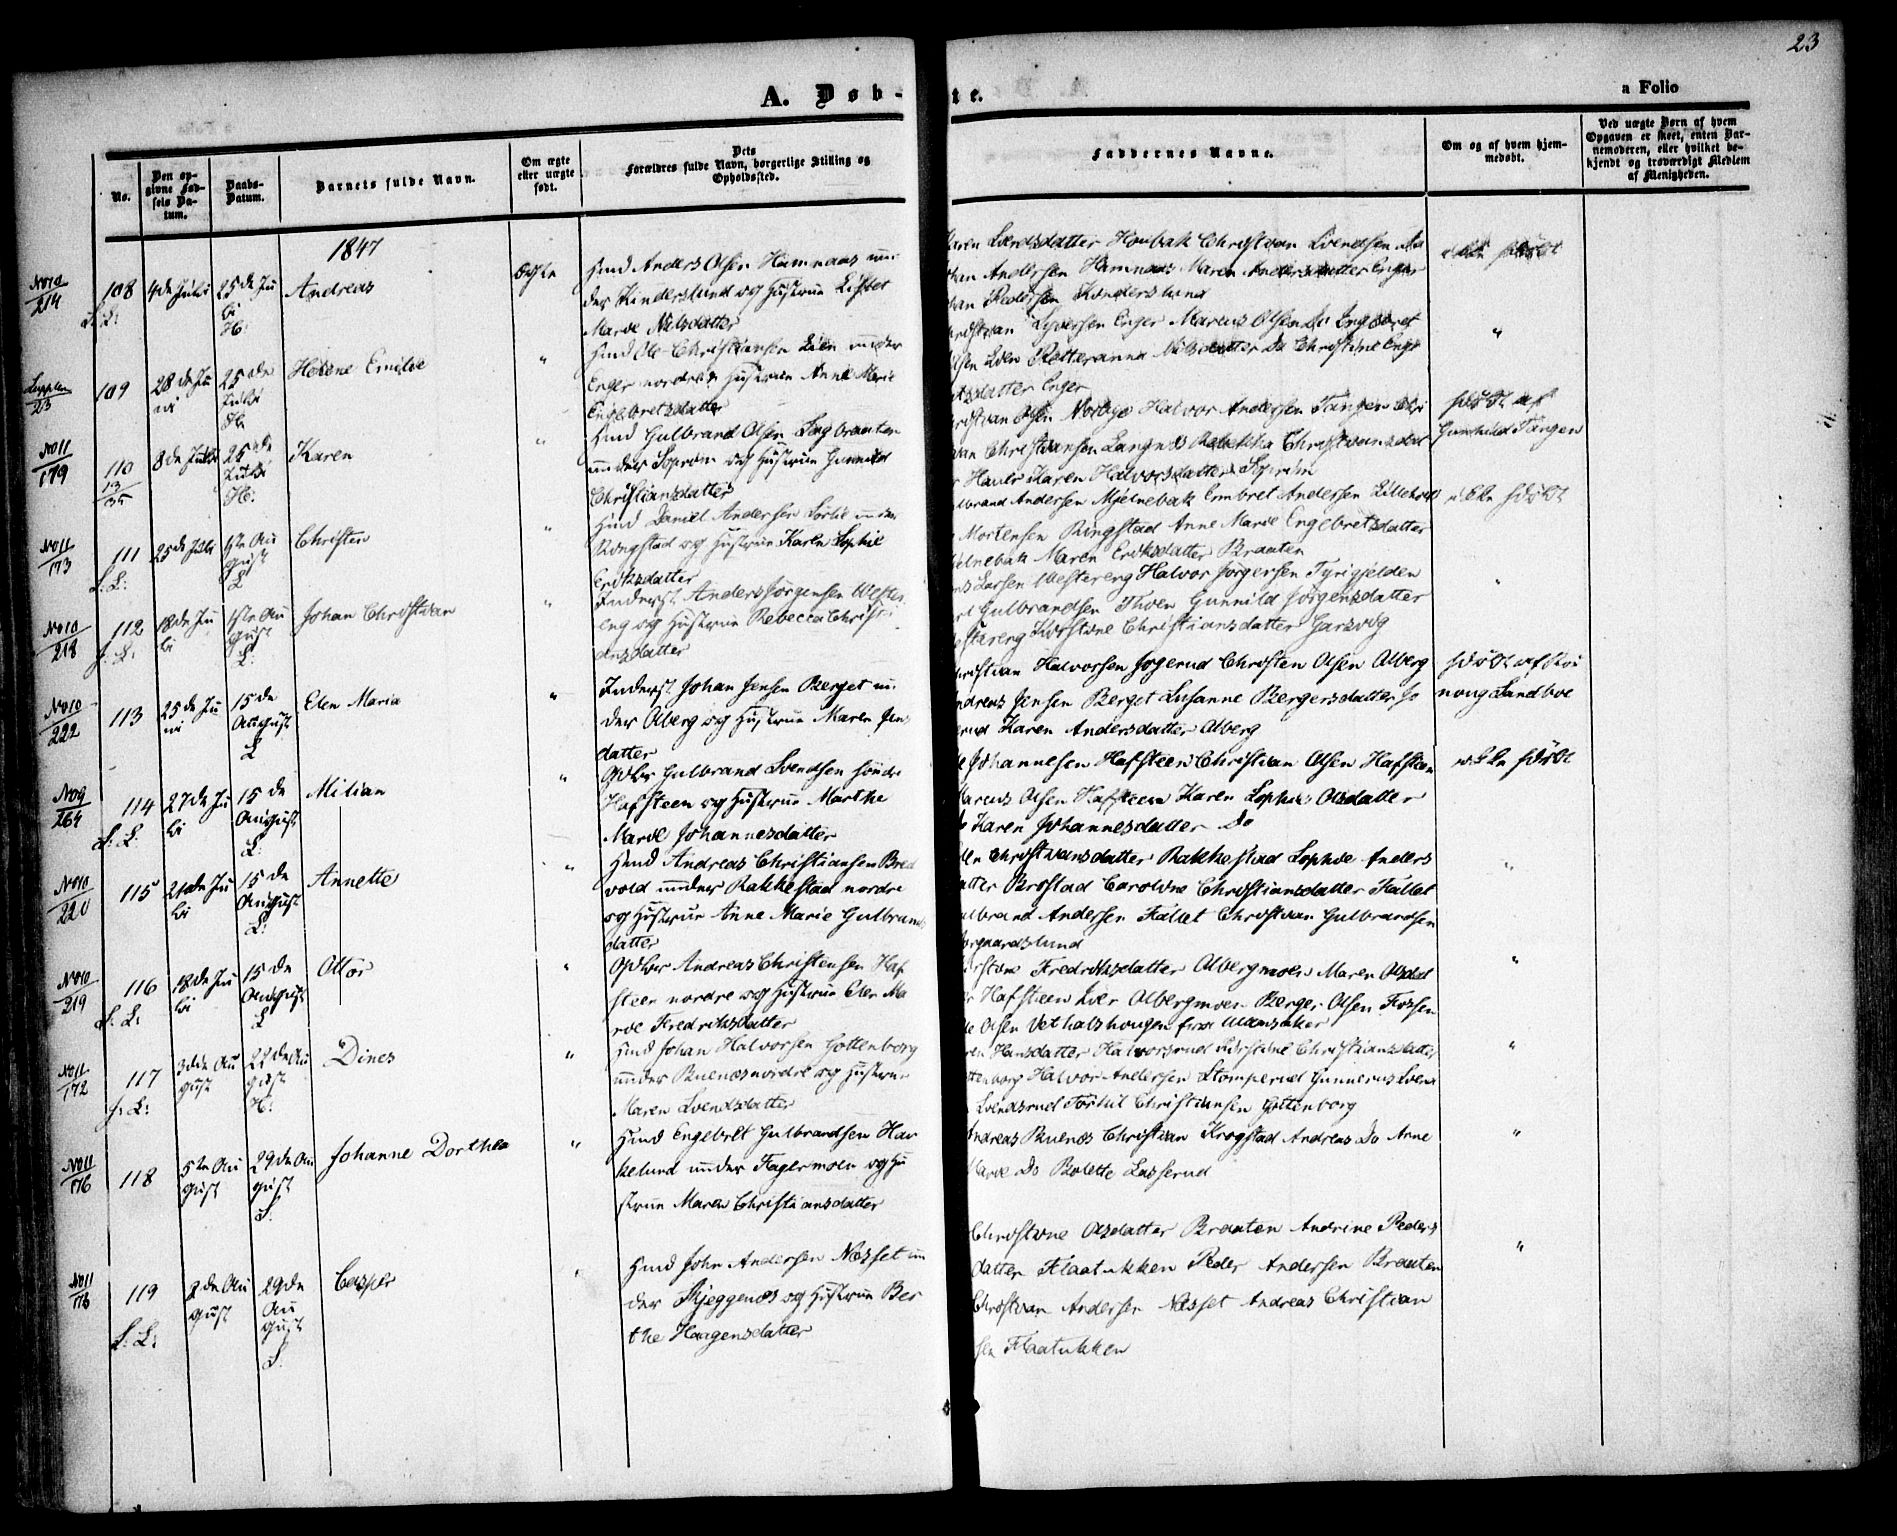 23
A. Døb-
te.
a Folio
No.
Den op-
givne Fød-
sels Da-
tum.
Daabs-
Datum.
Barnets fulde Navn.
Om ægte
eller uægte
født.
Dets
Forældres fulde Navn, borgerlige Stilling og
Opholdssted.
Faddernes Navne.
Om og af hvem hjem-
medøbt.
Ved uægte Børn af hvem
Opgaven er skeet, enten Bar-
nemoderen, eller hvilket be-
kjendt og troværdigt Medlem
af Menigheden.
1847
No 10
214
108
4de Juli
25de Ju
li
H:
Andreas
Ægte
Huusmd Anders Olsen Hamnaas un-
der Kinderslund og Hustrue Lisbet
Marie Nilsdatter
Karen Svendsdatter Houbak Christian Svendsen
Johan Andersen Hamnaas Maren Andersdatter Enger
Johan Pedersen Kinderslund
ikke hjdøbt
23
109
28de Ju
ni
25de
Juli
H.
Helene Emilie
"
Hmd Ole Christiansen Lien under
Enger nordre og Hustrue Anne Marie
Engebretsdatter
Christian Syversen Enger Marcus Olsen Do Engebret
Olsen Lien Petteranna Nilsdatter Do Christine Enge
bretsdatter Enger
"
No 11
179
110
13
35
8de Juli
25de
Juli
H:
Karen
"
Hmd Gulbrand Olsen Sagbraaten
under Soprim og Hustrue Gunnild
Christiansdatter
Christian Olsen Norbye Halvor Andersen Tangen Chri
stian Christiansen Langnes Rebekka Christiansdat
ter Hauer Karen Halvorsdatter Soprim
hjdøbt af
Gunnild Tangen
No 11
173
111
25de Juli
1ste Au
gust
L
Christen
"
Hmd Daniel Andersen Sørlie under
Ringstad og Hustrue Karen Sophie
Eriksdatter
Gulbrand Andersen Mjelnebak Embret Andersen
Mortensen Ringstad Anne Marie Engebretsdatter
Mjelnebak Maren Eriksdatter Braaten
ikke hjdøbt
No 10
218
112
18de Ju
li
1ste Au
gust
L:
Johan Christian
"
Inderst Anders Jørgensen Wester
eng og Hustrue Rebecca Christi
ansdatter
Larsen Westereng Halvor Jørgensen Tyrigjelden
Gulbrandsen Thoen Gunnild Jørgensdatter
Westereng Kirstine Christiansdatter Garsvig
"
No 10
222
113
25de Ju
ni
15de
August
L
Elen Maria
"
Inderst Johan Jensen Berget un-
der Alberg og Hustrue Maren Jens
datter
Christian Halvorsen Jogerud Christen Olsen Alberg
Andreas Jensen Berget Susanne Bergersdatter Jo
gerud Karen Andersdatter Alberg
hjdøbt af Kou
noug Sandboe
No 9
264
114
27de Ju
li
15de
August
L:
Milian
"
Opsidder Gulbrand Svendsen søndre
Hafsteen og Hustrue Marthe
Marie Johannesdatter
Ole Johannesen Hafsteen Christian Olsen Hafsteen
Marcus Olsen Hafsteen Karen Sophie Olsdatter
Do Karen Johannesdatter Do
ikke hjdøbt
No 10
220
115
21de Ju
li
15de
August
L:
Annette
"
Hmd Andreas Christiansen Bred
vold under Rakkestad nordre
og Hustrue Anne Marie Gulbrands
datter
Elen Christiansdatter Rakkestad Sophie Anders
datter Brostad Caroline Christiansdatter Fallet
Gulbrand Andersen Fallet Christian Gulbrandsen
Borgaardslund
"
No 10
219
116
18de Ju
li
15de
August
L
Ottar
"
Opsidder Andreas Christensen Haf
steen nordre og Hustrue Elen Ma
rie Fredriksdatter
Kirstine Fredriksdatter Albergmoen Maren Olsdat
ter Hafsteen Iver Albergmoen Berger Olsen Fossen
Ole Olsen Vethalshougen fra Ullensaker
"
No 11
172
117
3die Au
gust
22de Au
gust
H:
Dines
"
Hmd Johan Halvorsen Gottenborg
under Buenæs nordre og Hustrue
Maren Svendsdatter
Karen Hansdatter Halvorsrud Kirstine Christiansdatter
Gottenborg Halvor Andersen Stomperud Gunnerus Svend
sen Svendsrud Torkil Christiansen Gottenborg
"
No 11
176
118
5te Au
gust
29de Au
gust
S.
Johanne Dorthea
"
Hmd Engebret Gulbrandsen Hau
kelund under Fagermoen og Hu
strue Maren Christiansdatter
Andreas Buenæs Christian Krogstad Andreas Do Anne
Marie Do Bolette Lasserud
"
No 11
119
2de Au
gust
29de
Au
gust
S.
Casper
"
Hmd John Andersen Næsset un
der Skjeggenæs og Hustrue Ber
the Haagensdatter
Christine Olsdatter Braaten Andrine Peders
datter Flaatukken Peder Andersen Braaten
Christian Andersen Næsset Andreas Christian
sen Flaatukken
"